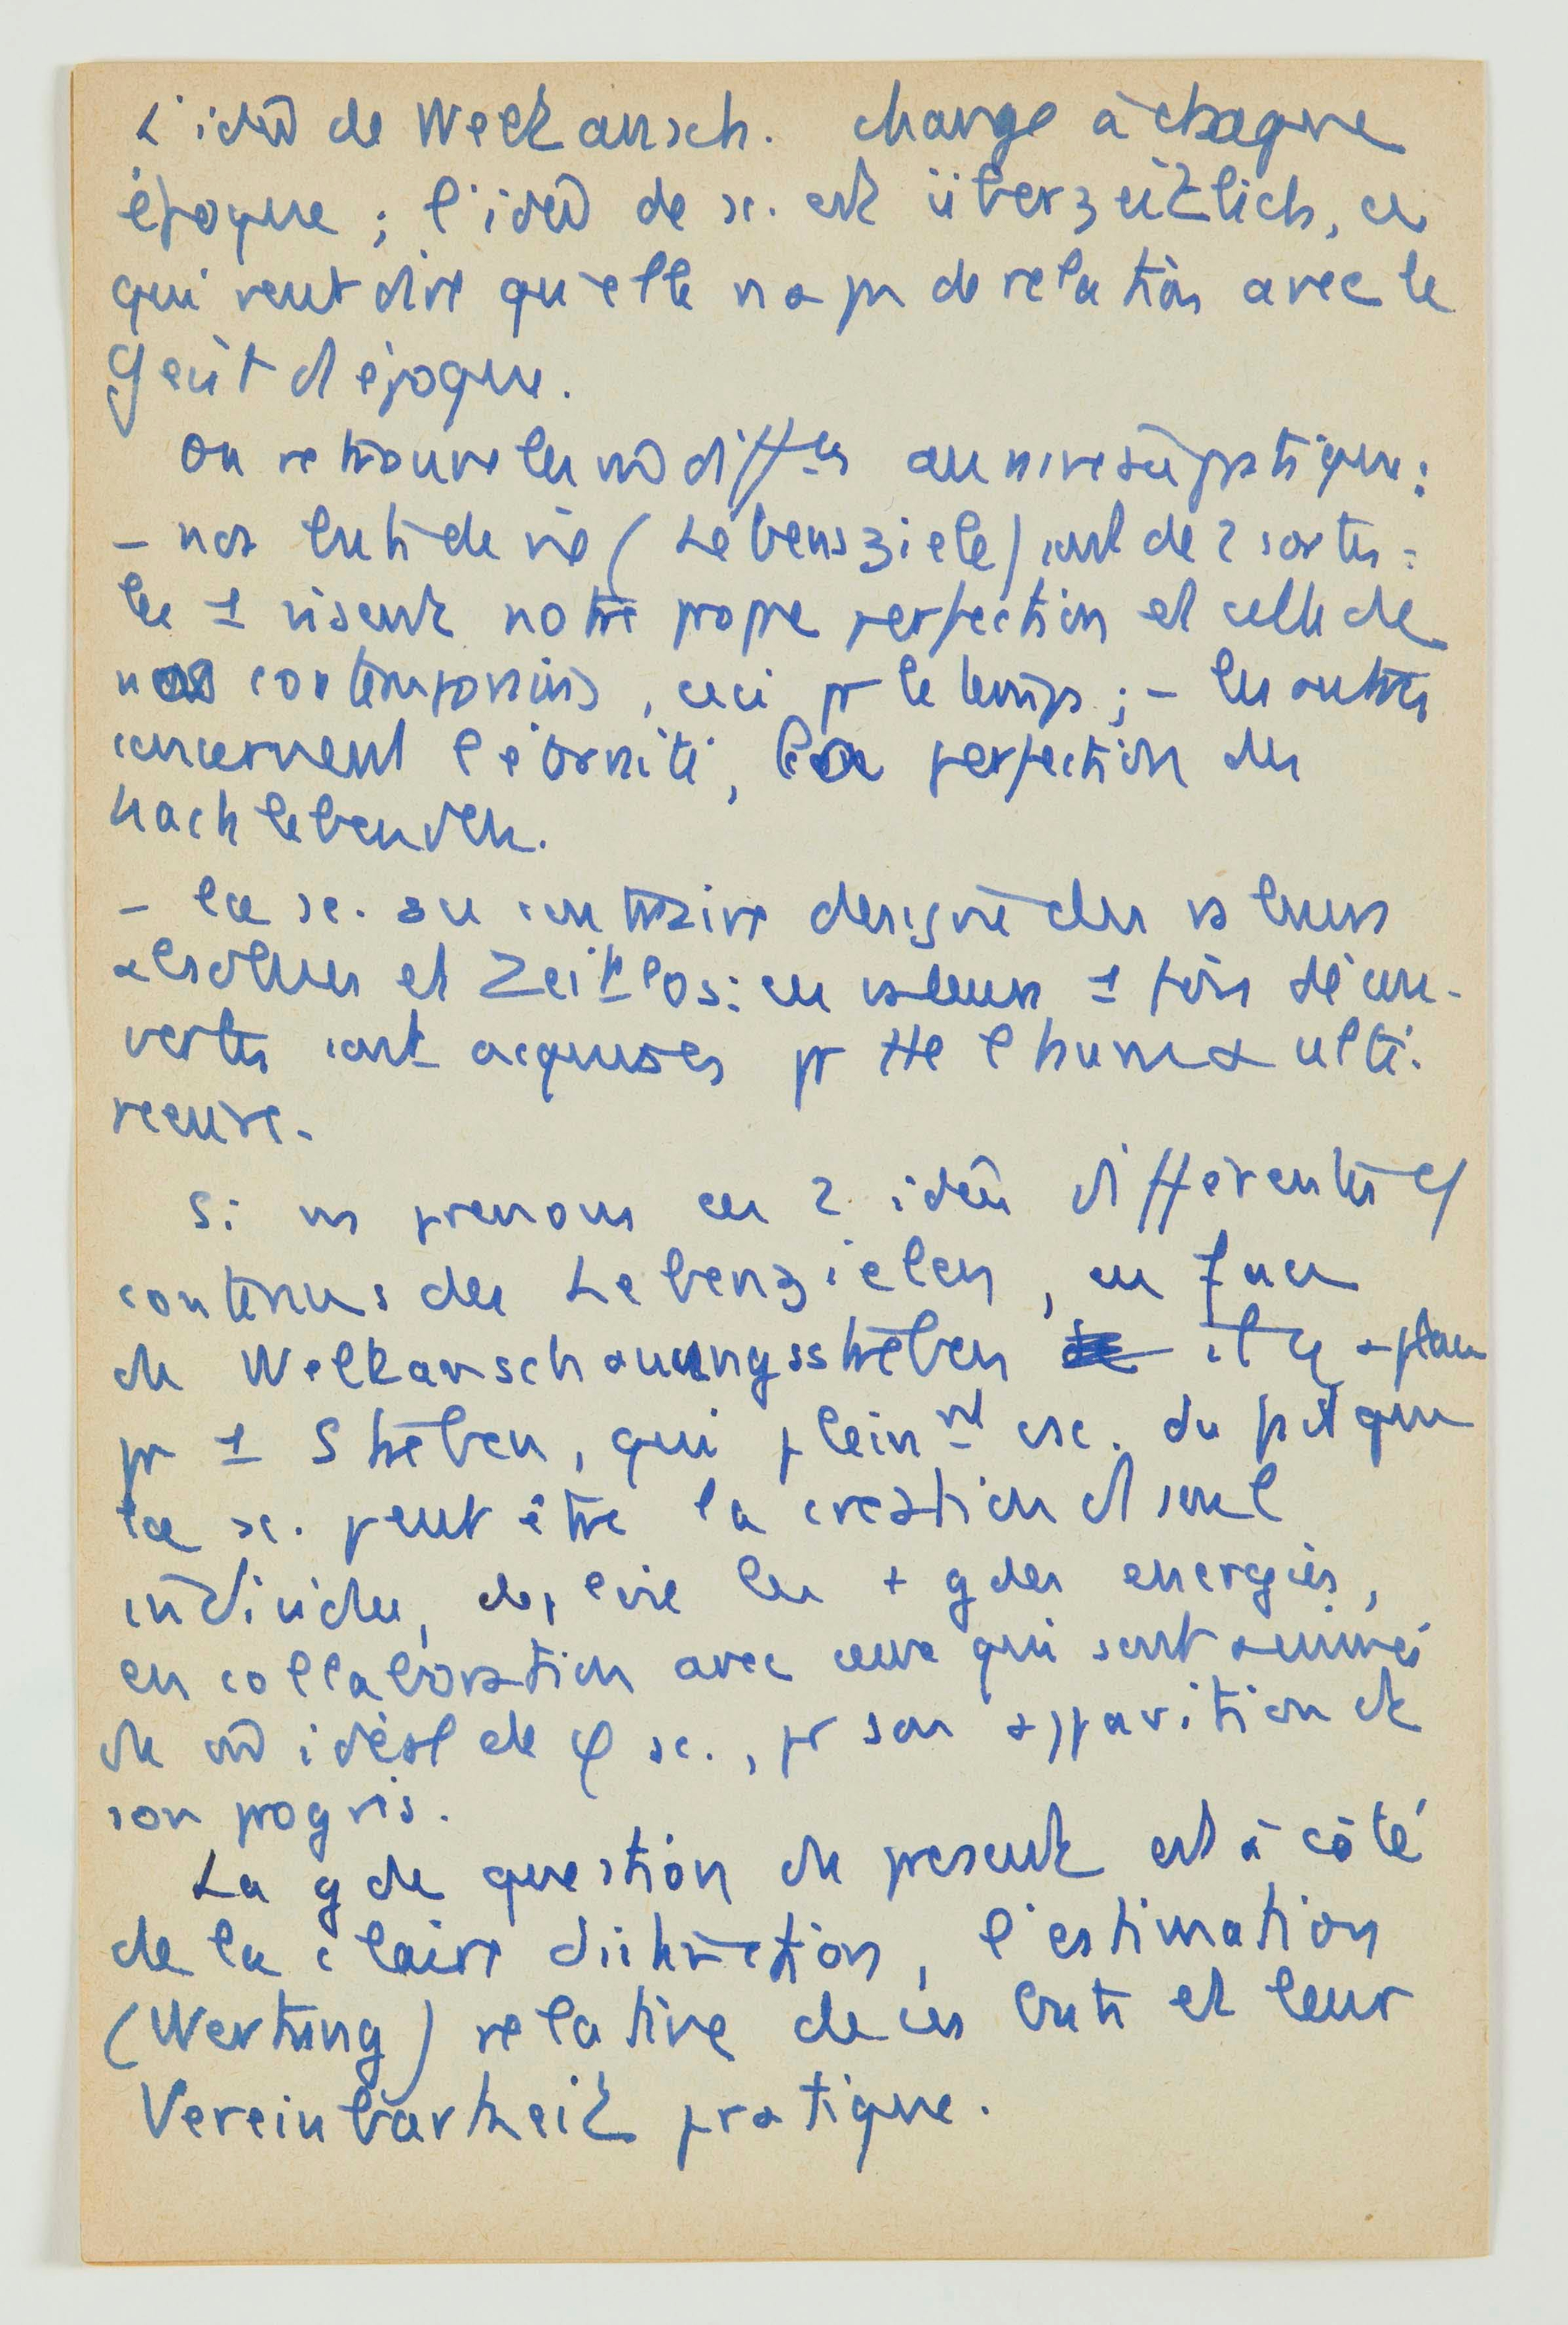 L'idée de Weltansch. change à chaque
époque ; l'idée de sc. est überzeitlich, ce
qui veut dire qu'elle n'a pas de relation avec le
Geist d'époque.
On retrouve les diff-ces au niveau pratique :
– nos buts de vie (Lebensziele) sont de 2 sortes :
les 1 visent notre propre perfection et celle de
nos contemporains, ceci pr le temps ; – les autres
concernent l'éternité, la perfection des
Nachlebenden.
– la sc. au contraire designe des valeurs
absolues et Zeitlos : ces valeurs 1 fois décou-
vertes sont acquises pr tte l'huma ulté-
rieure.
Si ns prenons ces 2 idées différentes
contenus des Lebenszielen, en face
du Weltanschauungsstreben il y a place
pr 1 Streben, qui pleinnt csc. du fait que
la sc. peut être la creation d'1 seul
individu, deploie les + gdes energies,
en collaboration avec ceux qui sont animés
du idéal de φ sc., pr son apparition et
son progrès.
La gde question du present est à côté
de la claire distinction, l'estimation
(Wertung) relative de ces buts et leur
Vereinbarkeit pratique.